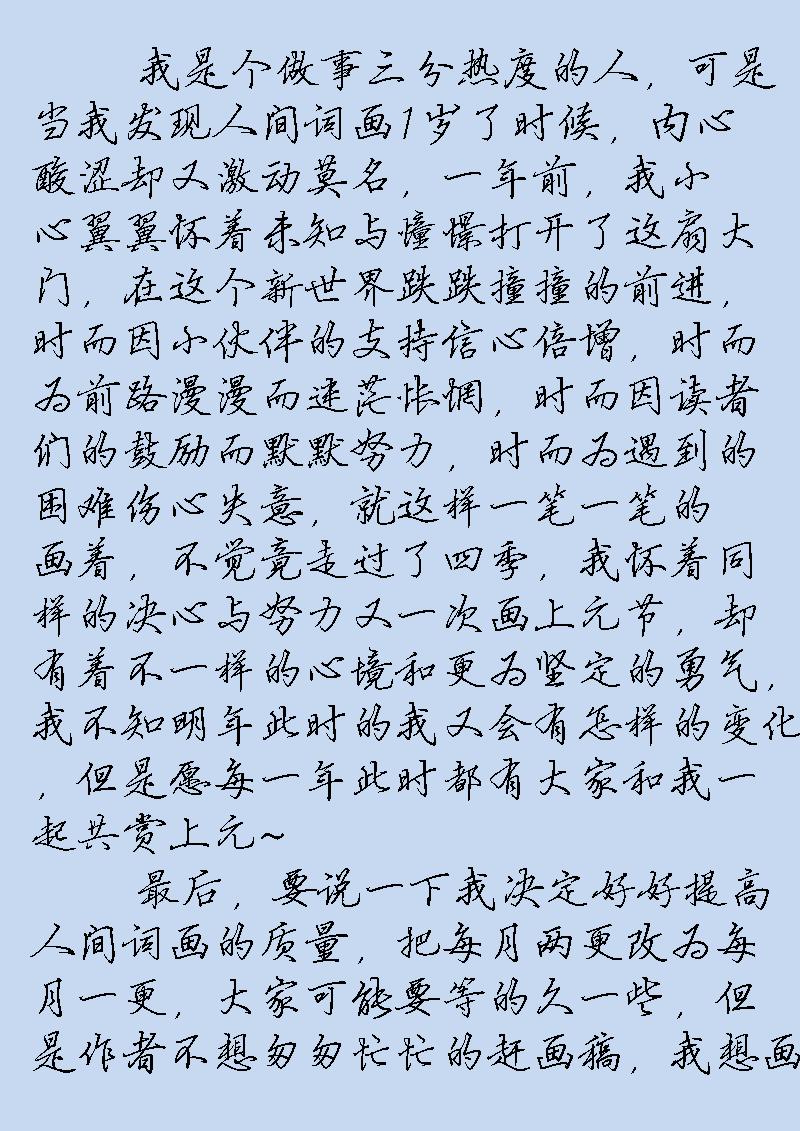 我是个做事三分热度的人，可是
当我发现人间词画1岁了时候，内心
酸涩却又激动莫名，一年前，我小
心翼翼怀着未知与憧憬打开了这扇大
门，在这个新世界跌跌撞撞的前进，
时而因小伙伴的支持信心倍增，时而
为前路漫漫而迷茫怅惘，时而因读者
们的鼓励而默默努力，时而为遇到的
困难伤心失意，就这样一笔一笔的
画着，不觉竟走过了四季，我怀着同
样的决心与努力又一次画上元节，却
有着不一样的心境和更为坚定的勇气，
我不知明年此时的我又会有怎样的变化
，但是愿每一年此时都有大家和我一
起共赏上元~
最后，要说一下我决定好好提高
人间词画的质量，把每月两更改为每
月一更，大家可能要等的久一些，但
是作者不想匆匆忙忙的赶画稿，我想画